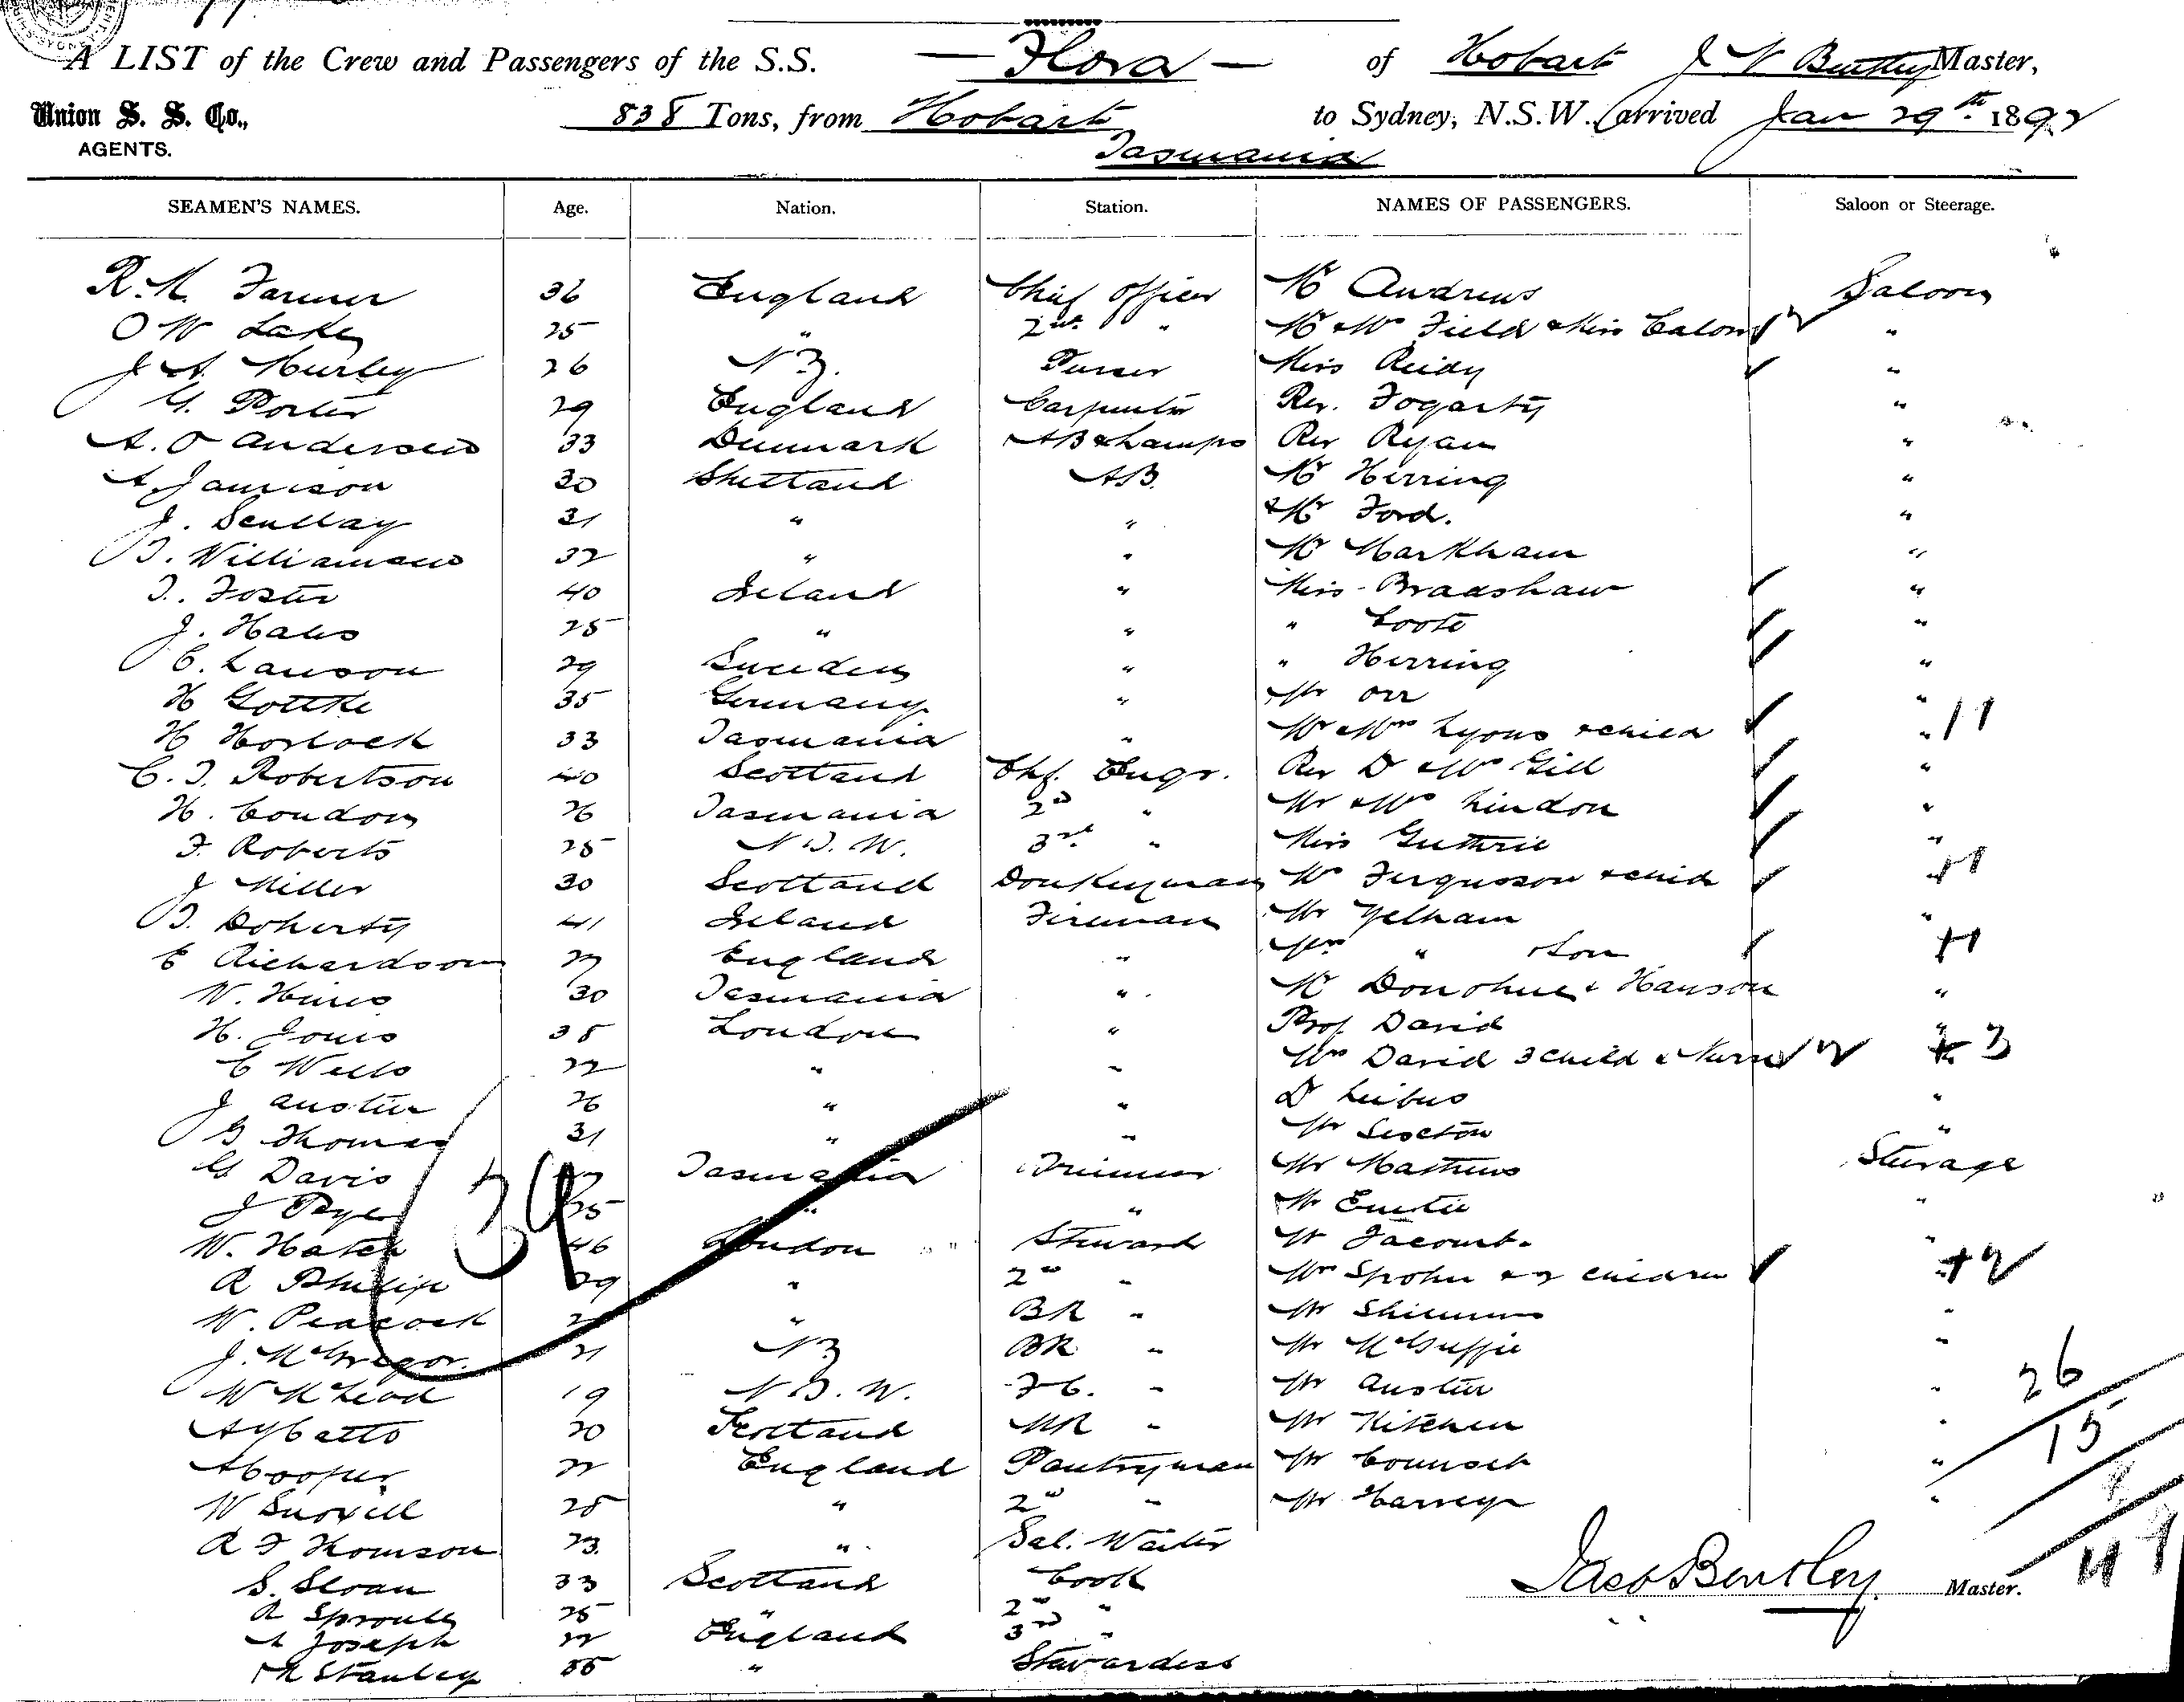 A LIST of the Crew and Passengers of the S.S. — Flora — of Hobart J Bentley Master,
Union S. S. Co., 838 Tons, from Hobart to Sydney, N.S.W. (arrived Jan 29th 1892
AGENTS. Tasmania
SEAMEN'S NAMES. Age. Nation. Station. NAMES OF PASSENGERS. Saloon or Steerage.
R. M. Farmer 36 England Chief Officer Mr Andrews Saloon
O W Lakey 25 " 2nd " Mr & Mrs Field & Miss "
J A Hurley 26 N.Z. Purser Miss Reidy "
G. Porter 29 England Carpenter Rev. Fogarty "
A. O Andersen 33 Denmark AB & Lamps Rev Ryan "
A. Jamieson 30 Shetland AB. Mr Herring "
J. Scullay 31 " " Mr Ford. "
T. Williamson 32 " " Mr Markham "
T. Foster 40 Ireland " Miss Bradshaw "
J. Hales 25 " " " Coote "
C. Lawson 29 Sweden " " Herring "
H Gottke 35 Germany " Mr Orr "
H Horlock 33 Tasmania " Mr & Mrs Lyons & child " 11
C. J. Robertson 40 Scotland Chf. Engr. Rev D & Mrs Gill "
H. Condon 26 Tasmania 2nd " Mr & Mrs Lindon "
F. Roberts 25 N.S.W. 3rd " Miss Guthrie "
J Miller 30 Scotland Donkeyman Mrs Fergusson & child "
T. Doherty 41 Ireland Fireman Mr Yelham "
E Richardson 27 England " Mrs " & Son
W. Hines 30 Tasmania " Mr Donohue & Hanson "
H. Jones 38 London " Prof. David "
C Wells 22 " " Mrs David 3 child & Nurse 3
J Austin 26 " " D "
G Thomas 31 " " Mr Sexton "
G Davis Tasmania Trimmer Mr Mathews Steerage
J Pye 25 " " Mr "
W. Hatch 46 London Steward Mr Jacomb. "
R Philip 29 " 2nd " Mrs Spohn & 2 children +2
W. Peacock " BR " Mr "
J. McGregor. 21 N.Z. BR " Mr McGuffie "
W McLeod 19 N.S.W. F.C. " Mr Austin "
A Y Catto 20 Scotland MR " Mr Kitchen "
A Cooper 22 England Pantryman Mr Counsel "
W 25 " 2nd " Mr Harvey "
R F Thomson 23. " Sal. Waiter
S. Sloan 33 Scotland Cook
R Sproule 25 " 2nd "
A Joseph 22 England 3rd "
M Stanley 35 " Stewardess
39
26
15
Jacob Bentley Master.